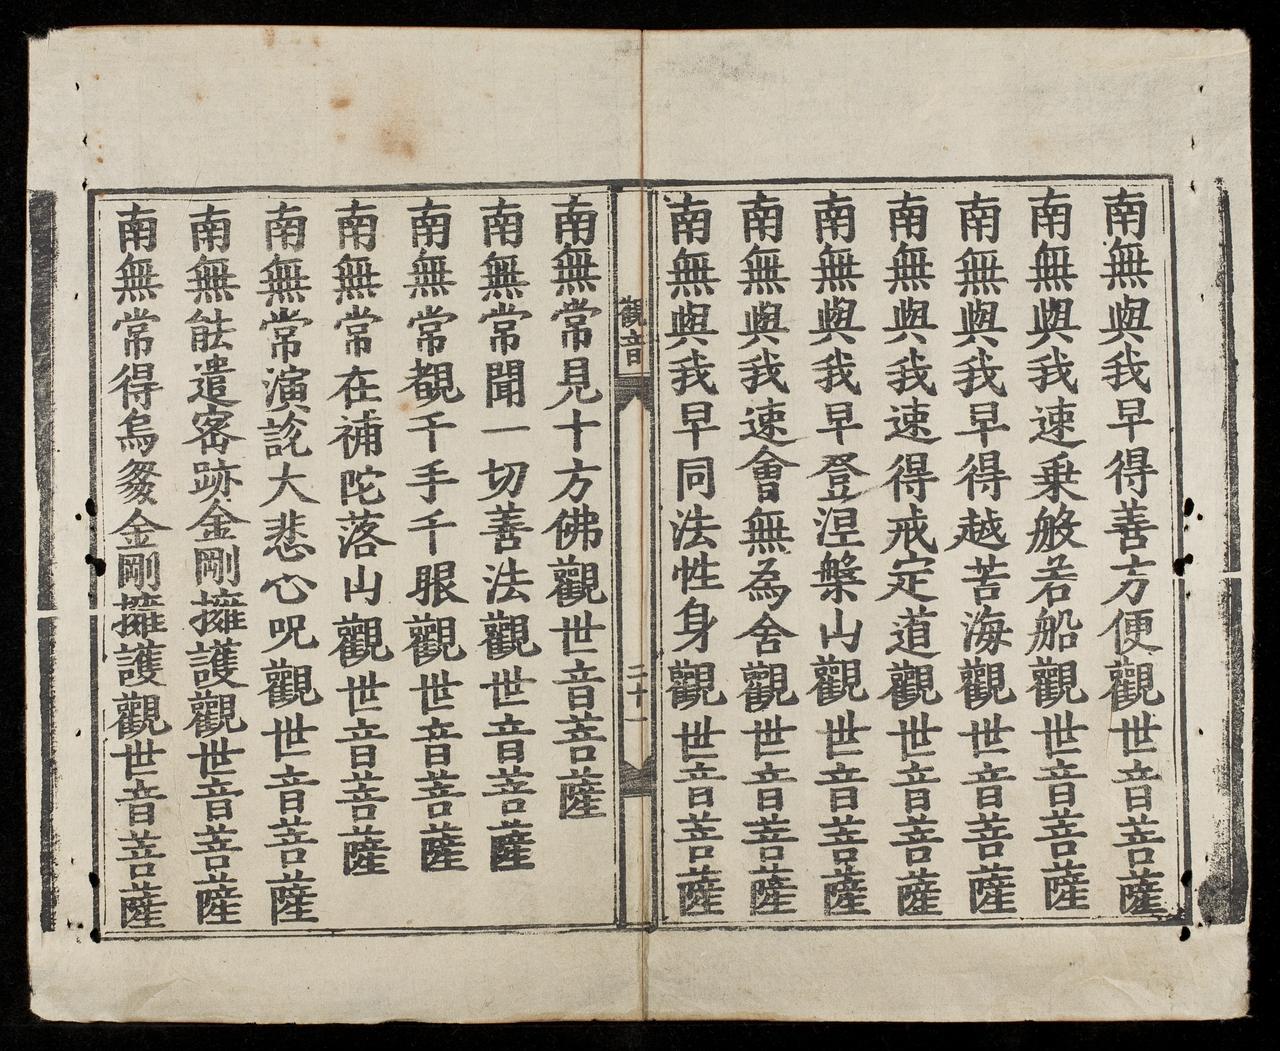 南無與我早得善方便觀世音菩薩
南無與我速乗般若船觀世音菩薩
南無與我早得越苦海觀世音菩薩
南無與我速得戒定道觀世音菩薩
南無與我早登涅槃山觀世音菩薩
南無與我速會無為舍觀世音菩薩
南無與我早同法性身觀世音菩薩
觀音
二十一
南無常見十方佛觀世音菩薩
南無常聞一切善法觀世音菩薩
南無常覩千手千眼觀世音菩薩
南無常在補陀落山觀世音菩薩
南無常演說大悲心呪觀世音菩薩
南無能遣密跡金剛擁護觀世音菩薩
南無常得烏芻金剛擁護觀世音菩薩